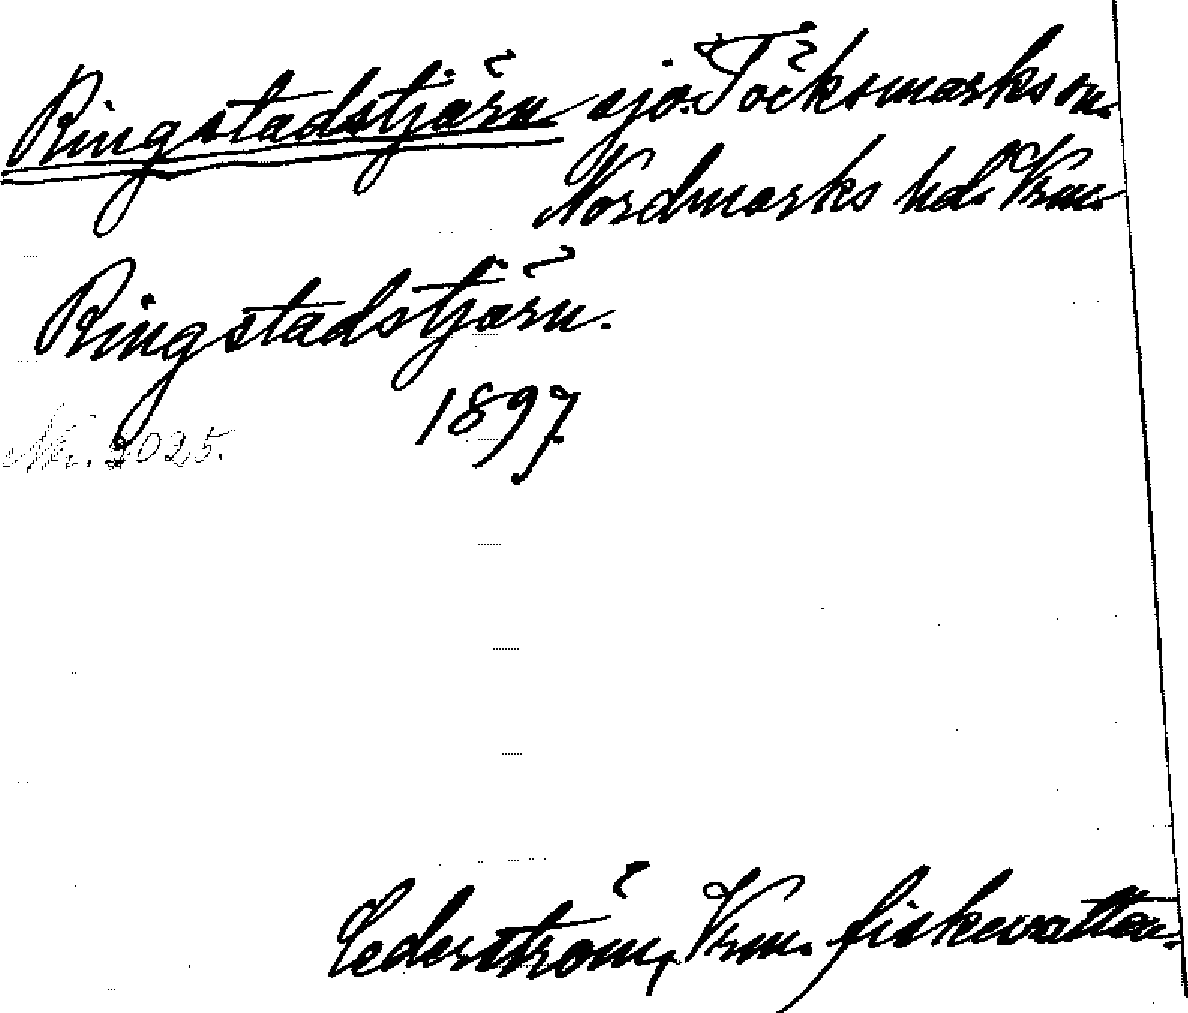 Ringstadstjärn sjö. Töcksmarks sn.
Nordmarks hd. Vrm.
Ringstadstjärn.
1897
Nr. 2025.
Cederström, Vrm. fiskevatten.